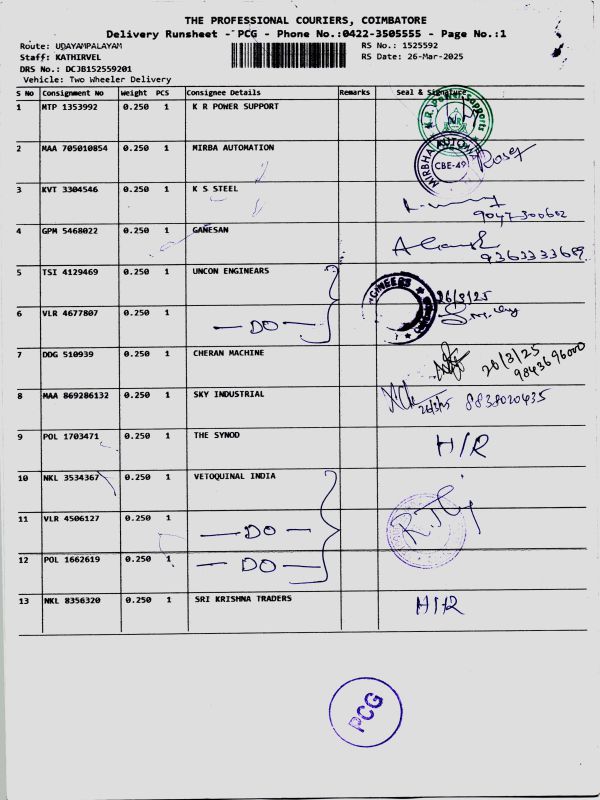 THE PROFESSIONAL COURIERS, COIMBATORE
Delivery Runsheet - PCG - Phone No.:0422-3505555 - Page No.:1
Route: UDAYAMPALAYAM RS No.: 1525592
Staff: KATHIRVEL RS Date: 26-Mar-2025
DRS No.: DCJB152559201
Vehicle: Two Wheeler Delivery
S No Consignment No Weight PCS Consignee Details Remarks Seal & Signature
1 MTP 1353992 0.250 1 K R POWER SUPPORT
2 MAA 705010854 0.250 1 MIRBA AUTOMATION CBE-49
3 KVT 3304546 0.250 1 K S STEEL
4 GPM 5468022 0.250 1 GANESAN 9363333689
5 TSI 4129469 0.250 1 UNCON ENGINEARS 26/3/25
6 VLR 4677807 0.250 1 — DO —
7 DDG 510939 0.250 1 CHERAN MACHINE 26/3/25 9843696000
8 MAA 869286132 0.250 1 SKY INDUSTRIAL 26/3/25 8838020435
9 POL 1703471 0.250 1 THE SYNOD H/R
10 NKL 3534367 0.250 1 VETOQUINAL INDIA
11 VLR 4506127 0.250 1 — DO —
12 POL 1662619 0.250 1 — DO —
13 NKL 8356320 0.250 1 SRI KRISHNA TRADERS H/R
PCG